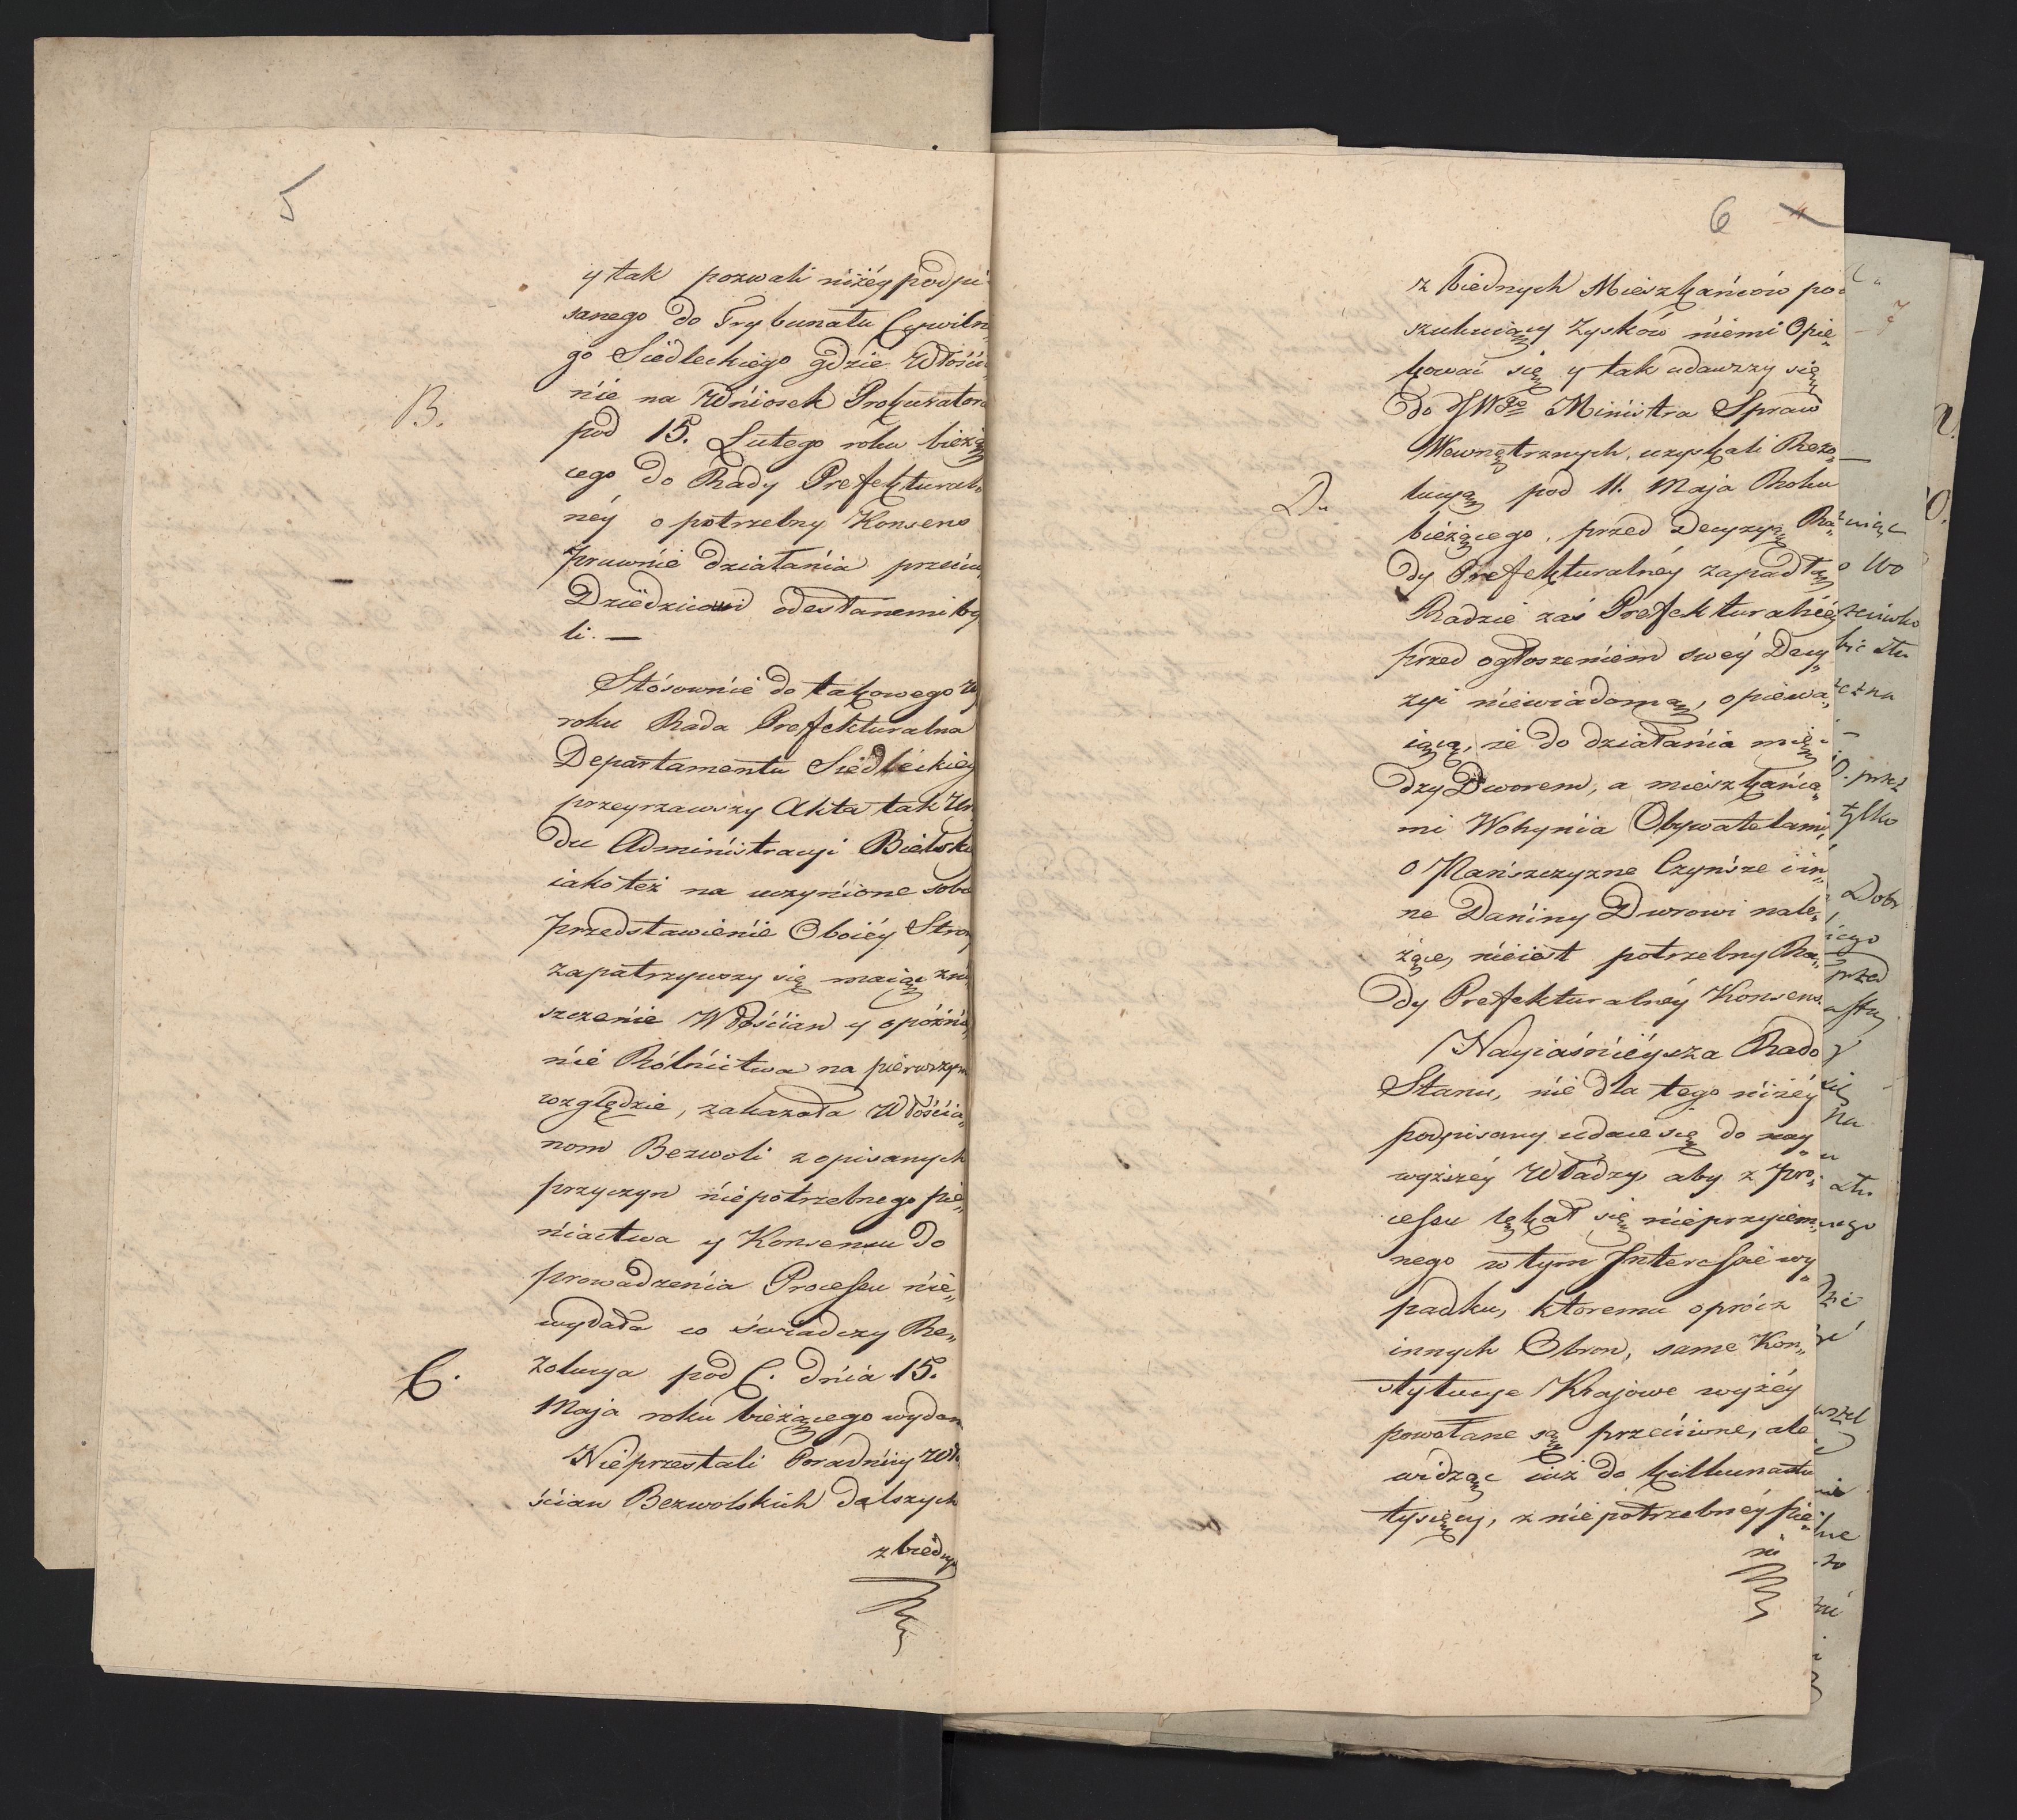 5
y tak pozwali niżéy podpi
sanego do Trybunału Cywiln
go Siedleckiego gdzie Włości
B.
nie na Wniosek Prokuratora
pod 15. Lutego roku bieżą
cego do Rady Prefektural„
néy o potrzebny Konsens
prawnie działania przeciw
Dziedzicowi odesłanemi by
li. —
Stósownie do takowego Wy
roku Rada Prefekturalna
Departamentu Siedleckiey
przeyrzawszy Akta tak Urzę
du Administracyi Bielsk
iako też na uczynione sobie
przedstawienie Oboiéy Stron
zapatrzywszy się maiąc zni
szczenie Włościan y opóźnie
nie Rólnictwa na pierwszym
względzie, zakazała Włościa„
nom Bezwoli z opisanych
przyczyn niepotrzebnego pie„
niactwa y Konsensu do
prowadzenia Processu nie„
wydała co świadczy Re„
C.
zolucya pod C. dnia 15.
Maja roku bieżącego wydan
Nieprzestali Poradnicy Wło
ścian Bezwolskich dalszych
z biedny
6
z biednych Mieszkańców po„
szukuiący Zysków niemi Opie„
kować się y tak udawszy się
do JWgo Ministra Spraw
Wewnętrznych, uzyskali Rezo„
D.
lucyą pod 11. Maja Roku
bieżącego, przed Decyzyą Ra„
dy Prefekturalnéy zapadłą
Radzie zaś Prefekturalnéy
przed ogłoszeniem swéy Decy„
zyi niewiadomą, opiewa„
iącą, że do działania mię„
dzy Dworem, a mieszkańca„
mi Wohynia Obywatelami
o Pańszczyznę Czynsze i in„
ne Daniny Dworowi nale„
żące, nieiest potrzebny Ra„
dy Prefekturalnéy Konsens.
Nayiaśnieysza Rado
Stanu, nie dla tego niżéy
podpisany udaie się do nay„
wyższéy Władzy, aby z Pro„
cessu lękał się nieprzyiem„
nego w tym Interessie wy„
padku, ktoremu oprócz
innych Obron, same Kon„
stytucye Krajowe wyżéy
powołane są przeciwne, ale
widząc iuż do kilkunastu
tysięcy, z niepotrzebnéy Pie„
ni